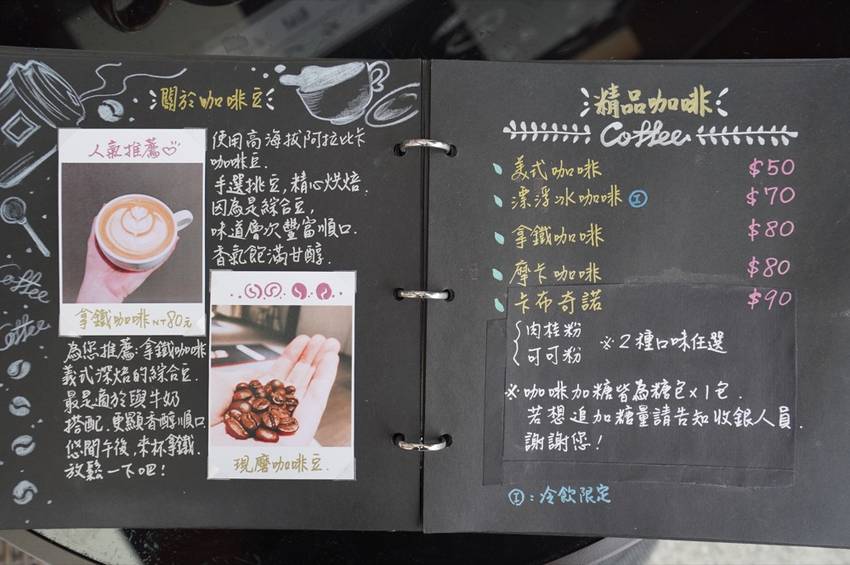 關於咖啡豆
人氣推薦
拿鐵咖啡 NT80元
使用高海拔阿拉比卡
咖啡豆.
手選挑豆,精心烘焙.
因為是綜合豆,
味道層次豐富順口.
香氣飽滿甘醇.
為您推薦‧拿鐵咖啡
義式深焙的綜合豆.
最是適於與牛奶
搭配.更顯香醇順口.
悠閒午後,來杯拿鐵.
放鬆一下吧!
現磨咖啡豆.
Coffee
Coffee
精品咖啡
Coffee
美式咖啡 $50
漂浮冰咖啡 I $70
拿鐵咖啡 $80
摩卡咖啡 $80
卡布奇諾 $90
肉桂粉
可可粉 ※2種口味任選
※咖啡加糖皆為糖包x1包.
若想追加糖量請告知收銀人員.
謝謝您!
I:冷飲限定